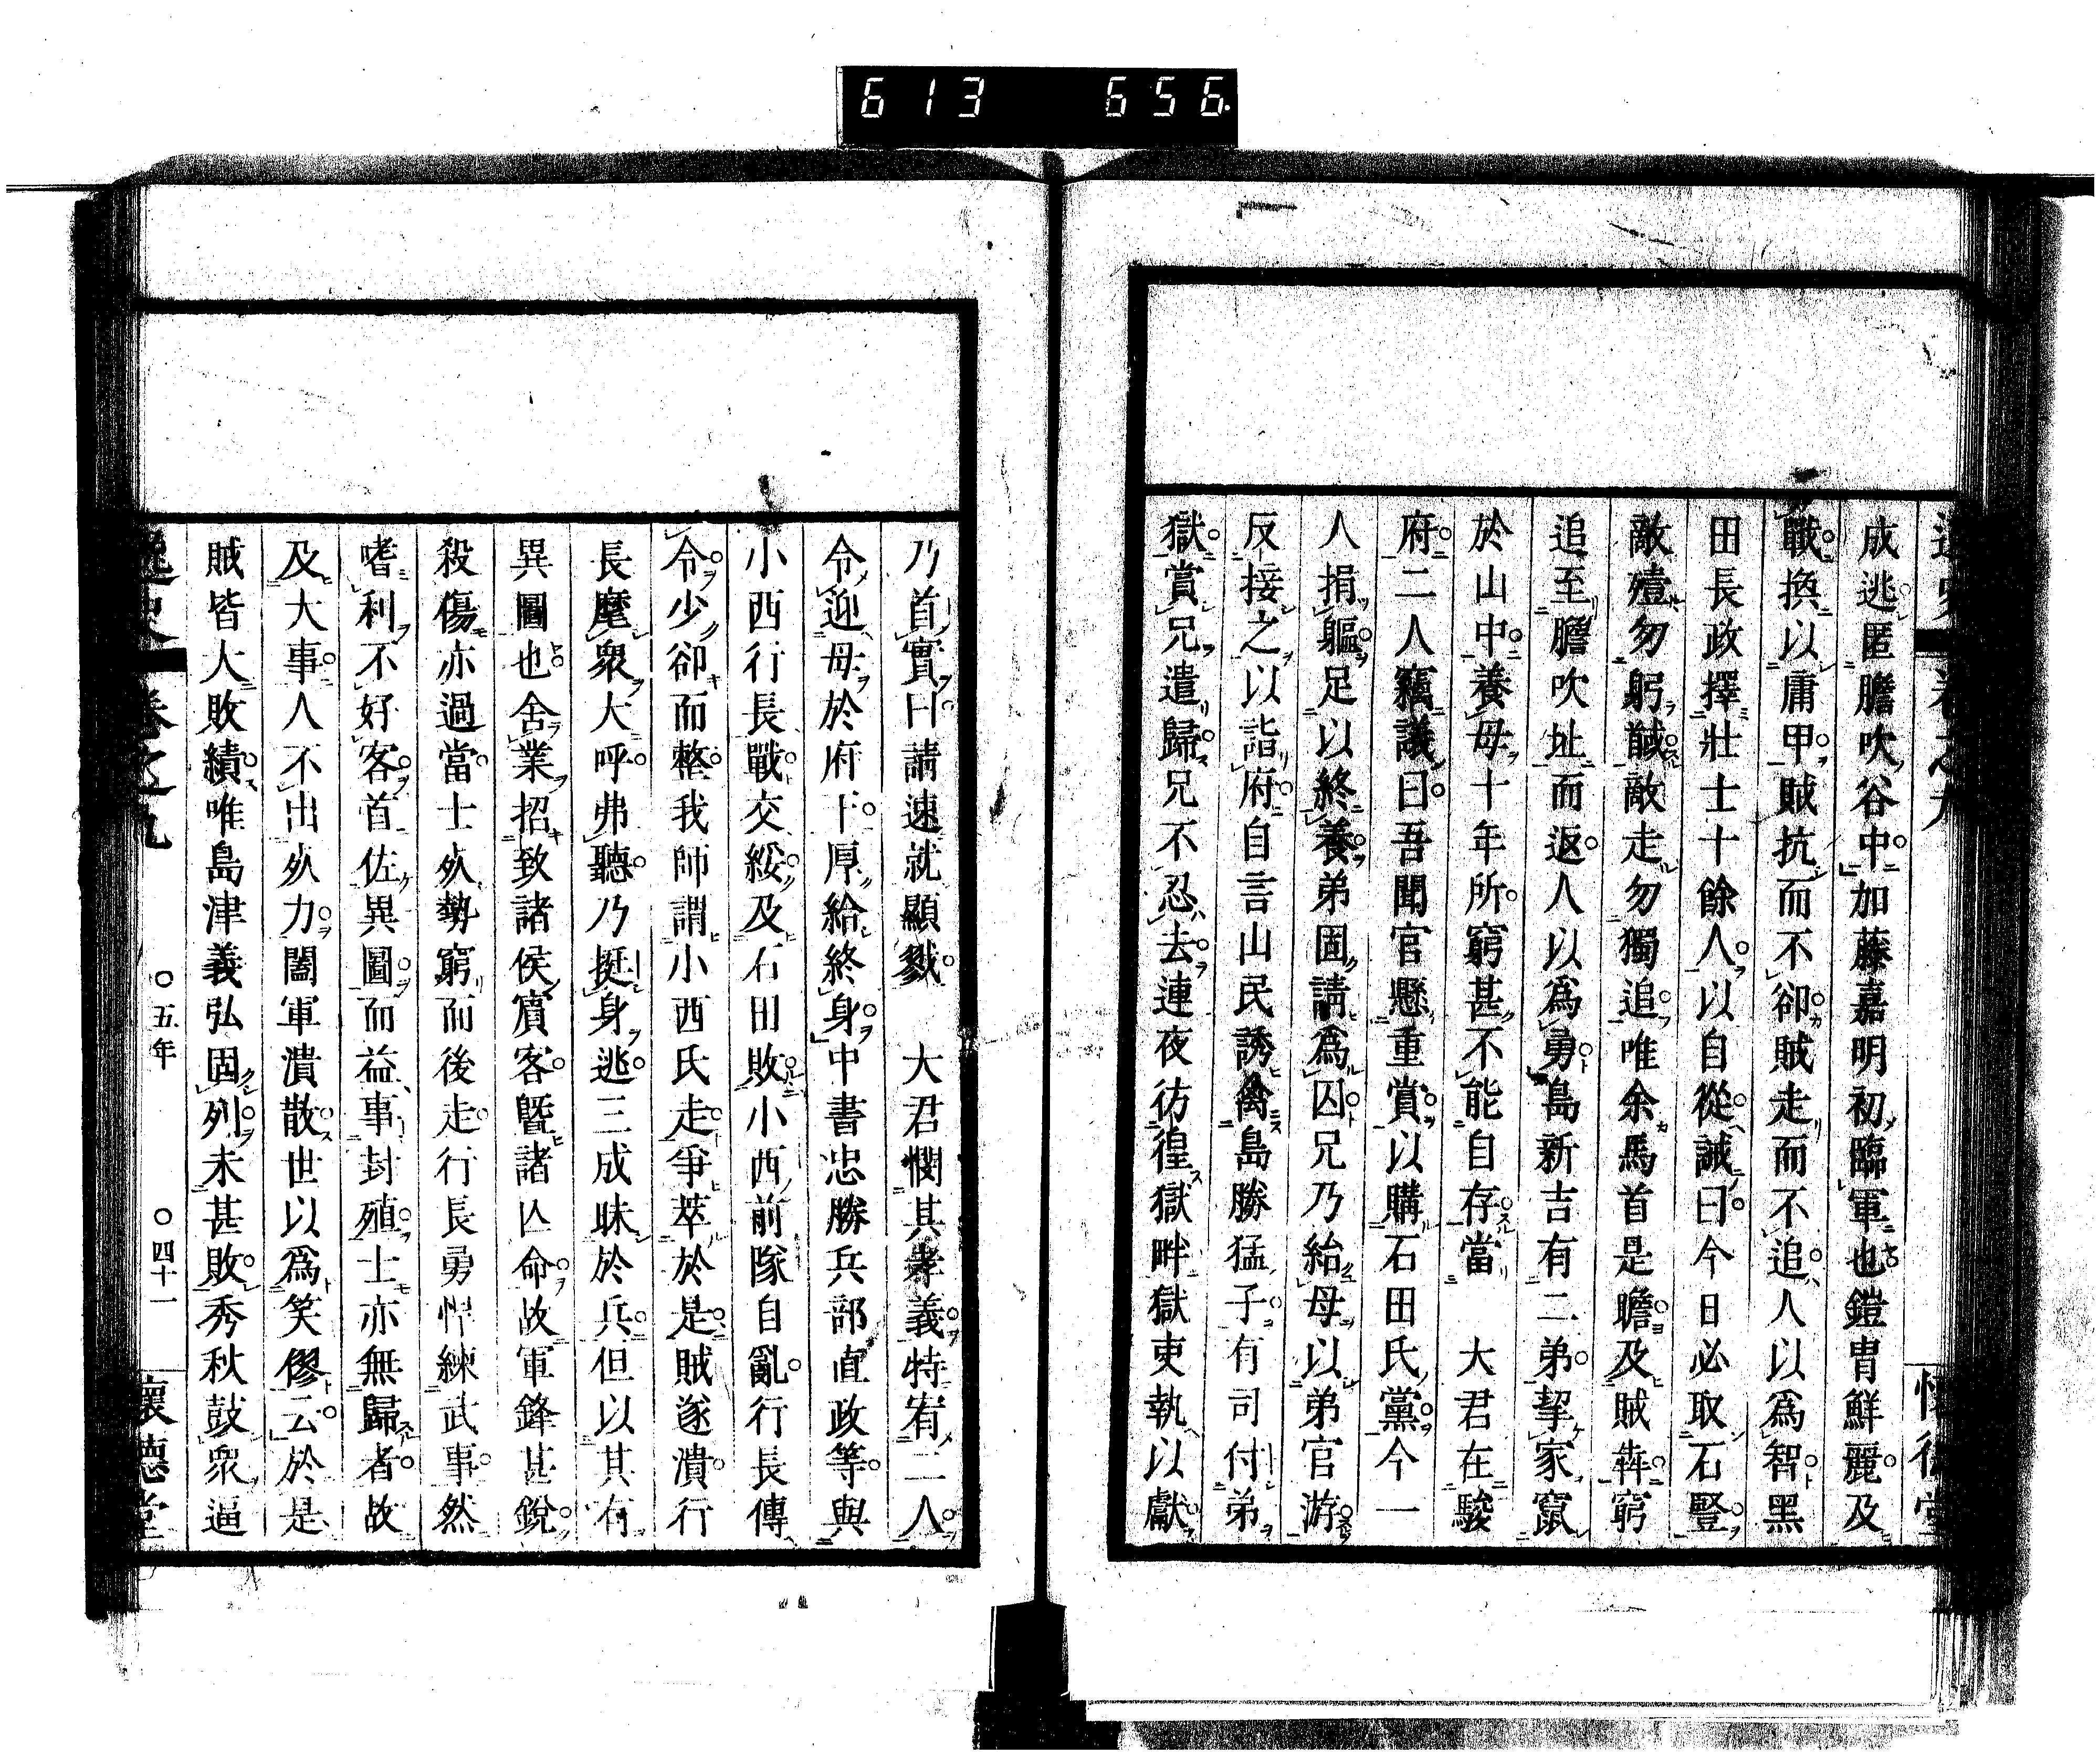 613 656
逸史 卷之九 懷德堂
成逃匿膽吹谷中加藤嘉明初臨軍也鎧冑鮮麗及
戰換以庸甲賊抗而不卻賊走而不追人以爲智黑
田長政擇壯士十餘人以自從誡曰今日必取石豎
敵殪勿躬馘敵走勿獨追唯余馬首是瞻及賊犇窮
追至膽吹址而返人以爲勇島新吉有二弟挈家竄
於山中養母十年所窮甚不能自存當 大君在駿
府二人竊議曰吾聞官懸重賞以購石田氏黨今一
人捐軀足以終養弟固請爲囚兄乃紿母以弟官游
反接之以詣府自言山民誘禽島勝猛子有司付弟
獄賞兄遣歸兄不忍去連夜彷徨獄畔獄吏執以獻
乃首實曰請速就顯戮 大君憫其孝義特宥二人
令迎母於府下厚給終身中書忠勝兵部直政等與
小西行長戰交綏及石田敗小西前隊自亂行長傳
令少卻而整我師謂小西氏走爭萃於是賊遂潰行
長麾衆大呼弗聽乃挺身逃三成昧於兵但以其有
異圖也舍業招致諸侯賓客曁諸亾命故軍鋒甚銳
殺傷亦過當士死勢窮而後走行長勇悍練武事然
嗜利不好客首佐異圖而益事封殖士亦無歸者故
及大事人不出死力闔軍潰散世以爲笑僇云於是
賊皆大敗績唯島津義弘固列未甚敗秀秋鼓衆逼
逸史 卷之九 ○五年 ○四十一 懷德堂